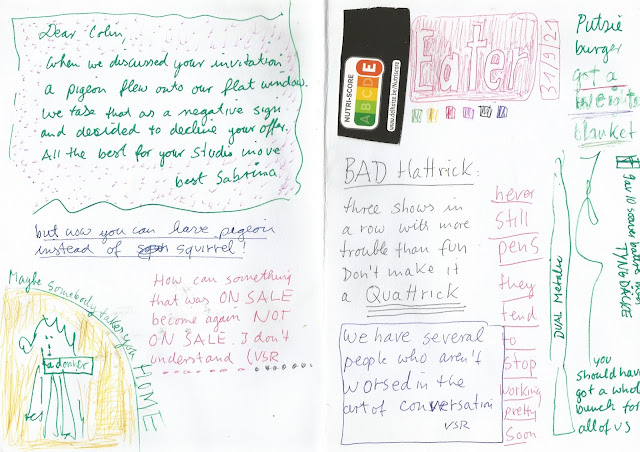 Dear Colin,
when we discussed your invitation
a pigeon flew onto our flat window.
We take that as a negative sign
and decided to decline your offer.
All the best for your Studio move
best Sabrina
but now you can have pigeon
instead of squirrel!
Maybe somebody takes you HOME
How can something
that was ON SALE
become again NOT
ON SALE. I don't
understand (VSR
NUTRI-SCORE
A B C D E
Eater
31 9 21
BAD Hattrick:
three shows in
a row with more
trouble than fun
Don't make it
a Quattrick
We have several
people who aren't
worsed in the
art of conversation
VSR
never
still
pens
they
tend
to
stop
working
pretty
soon
DUAL Metallic
Putzie
burger
got a
blanket
you
should have
got a whole
bunch for
all of us